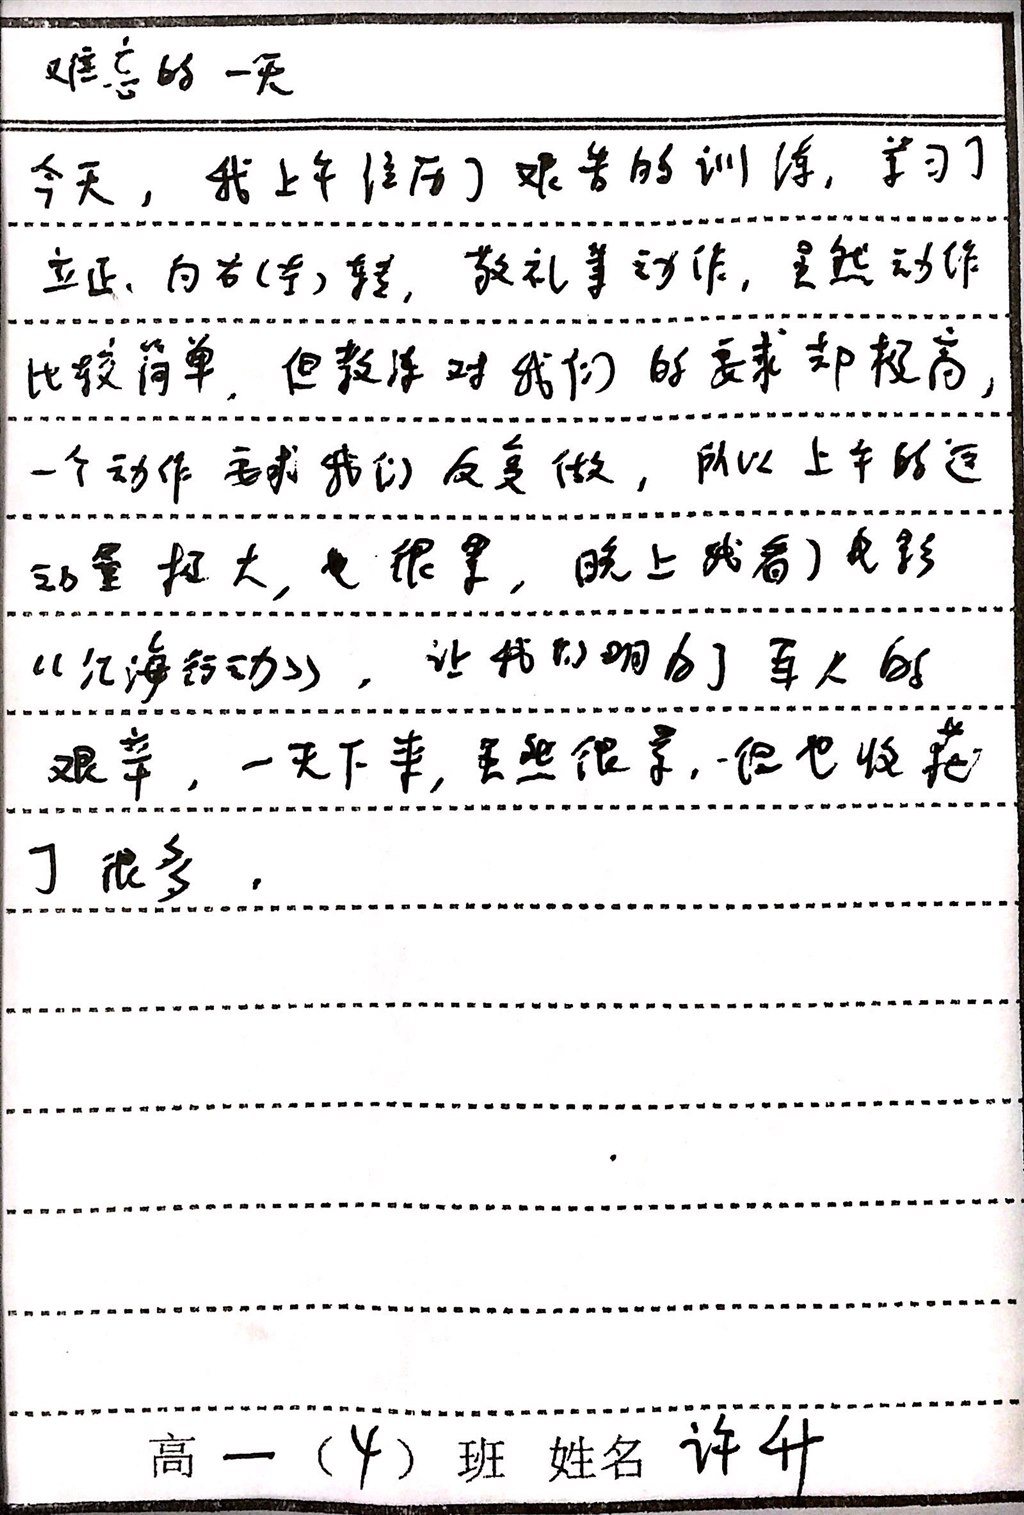 难忘的一天
今天，我上午经历了艰苦的训练，学习了
立正、向右(左)转，敬礼等动作，虽然动作
比较简单，但教练对我们的要求却极高，
一个动作要求我们反复做，所以上午的运
动量极大，也很累，晚上我看了电影
《红海行动》，让我们明白了军人的
艰辛，一天下来，虽然很累，但也收获
了很多．
高一（4）班 姓名 许升